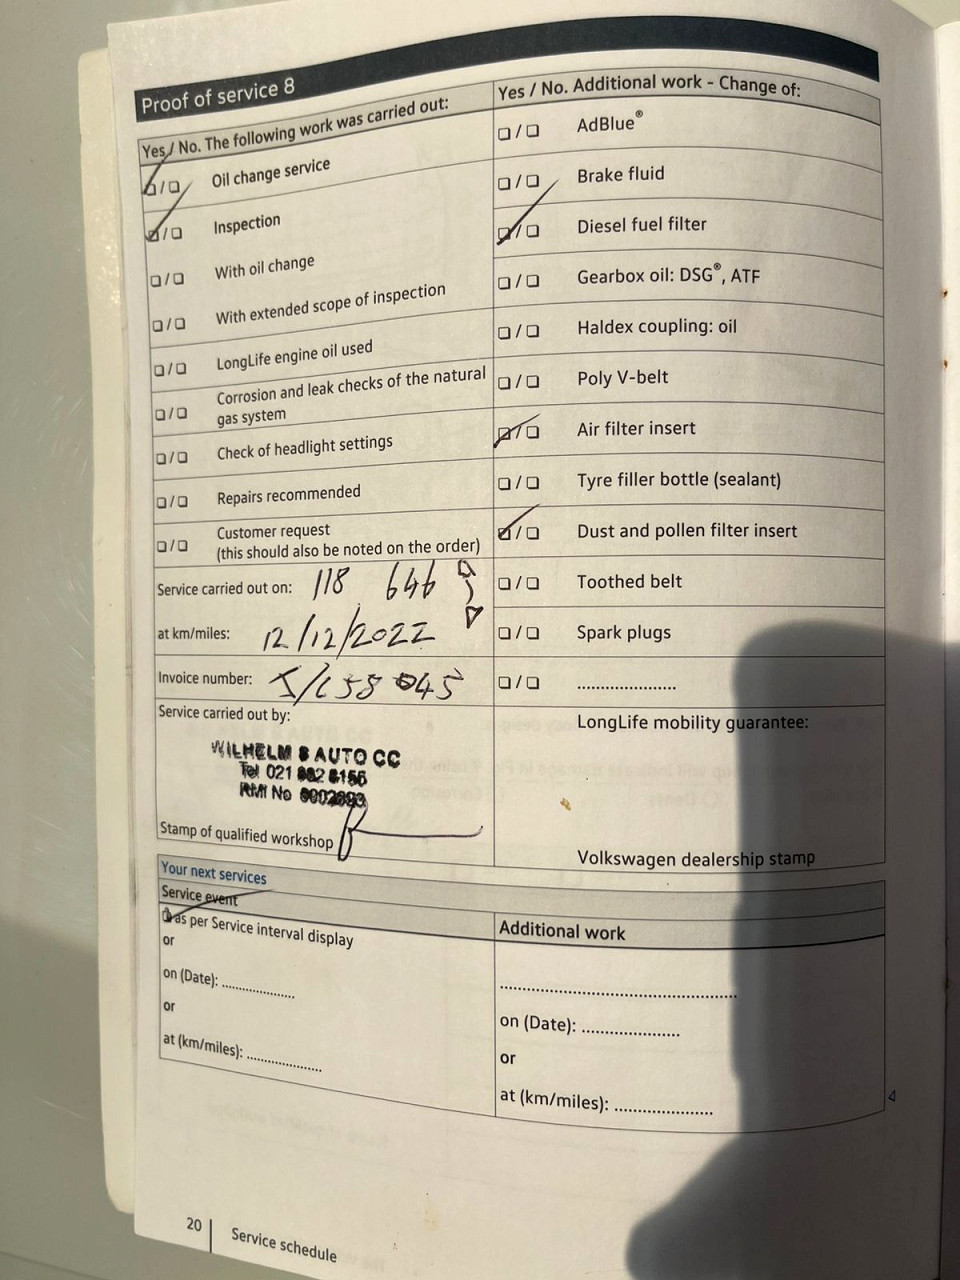 Proof of service 8
Yes / No. The following work was carried out:
❏ / ❏ Oil change service
❏ / ❏ Inspection
❏ / ❏ With oil change
❏ / ❏ With extended scope of inspection
❏ / ❏ LongLife engine oil used
❏ / ❏ Corrosion and leak checks of the natural
gas system
❏ / ❏ Check of headlight settings
❏ / ❏ Repairs recommended
❏ / ❏ Customer request
(this should also be noted on the order)
Service carried out on: 118 646
at km/miles: 12/12/2022
Invoice number:
Service carried out by:
WILHELM S AUTO CC
Tel 021
RMI No
Stamp of qualified workshop
Yes / No. Additional work - Change of:
❏ / ❏ AdBlue®
❏ / ❏ Brake fluid
❏ / ❏ Diesel fuel filter
❏ / ❏ Gearbox oil: DSG®, ATF
❏ / ❏ Haldex coupling: oil
❏ / ❏ Poly V-belt
❏ / ❏ Air filter insert
❏ / ❏ Tyre filler bottle (sealant)
❏ / ❏ Dust and pollen filter insert
❏ / ❏ Toothed belt
❏ / ❏ Spark plugs
❏ / ❏ ....................
LongLife mobility guarantee:
Volkswagen dealership stamp
Your next services
Service event
❏ as per Service interval display
or
on (Date): ...............
or
at (km/miles): ...............
Additional work
................................................
on (Date): ....................
or
at (km/miles): ....................
20 | Service schedule